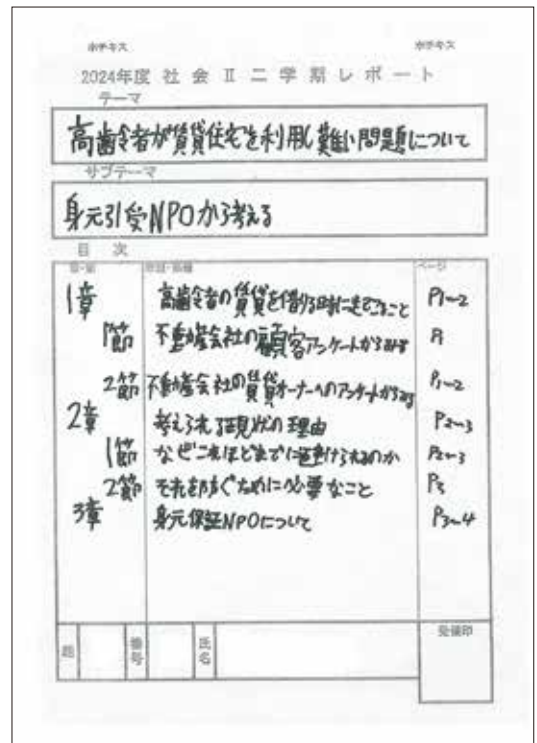 ホチキス ホチキス
2024年度 社会Ⅱ二学期レポート
テーマ
高齢者が賃貸住宅を利用し難い問題について
サブテーマ
身元引受NPOから考える
目次
章・節 ページ
1章 高齢者の賃貸を借りる時に起こること P1~2
1節 不動産会社の顧客アンケートからみる P1
2節 不動産会社の賃貸オーナーへのアンケートからみる P1~2
2章 考えられる現状の理由 P2~3
1節 なぜこれほどまでに避けられるのか P2~3
2節 それを防ぐために必要なこと P3
3章 身元保証NPOについて P3~4
組 番号 氏名 受領印